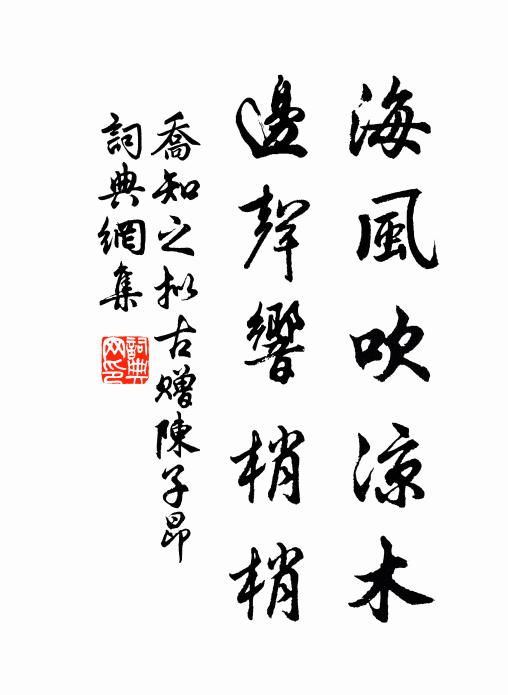 海風吹涼木
邊聲響梢梢
喬知之拟古赠陳子昂
詞典網集
詞典網印